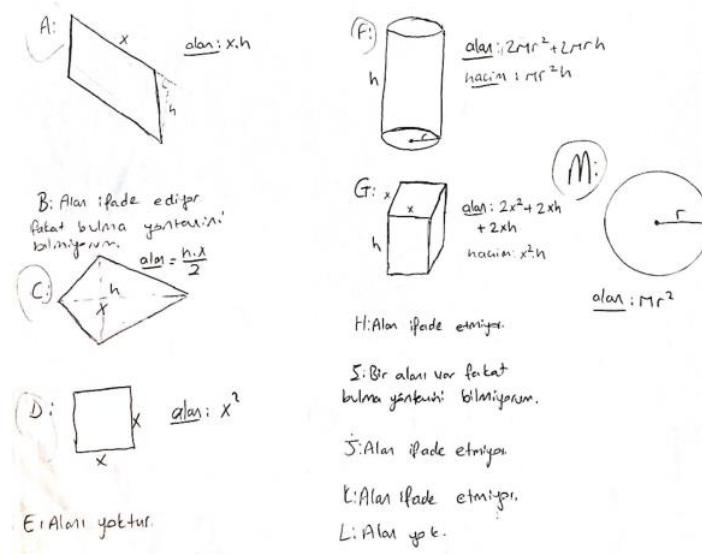 A:
x
h
alan: x.h
B: Alan ifade ediyor
fakat bulma yöntemini
bilmiyorum.
C:
h
x
alan = h.x / 2
D:
x
x
alan: x²
E: Alanı yoktur.
F:
h
r
alan: 2πr² + 2πrh
hacim: πr²h
G:
x
x
h
alan: 2x² + 2xh
+ 2xh
hacim: x².h
H: Alan ifade etmiyor.
I: Bir alanı var fakat
bulma yöntemini bilmiyorum.
J: Alan ifade etmiyor.
K: Alan ifade etmiyor.
L: Alan yok.
M:
r
alan: πr²